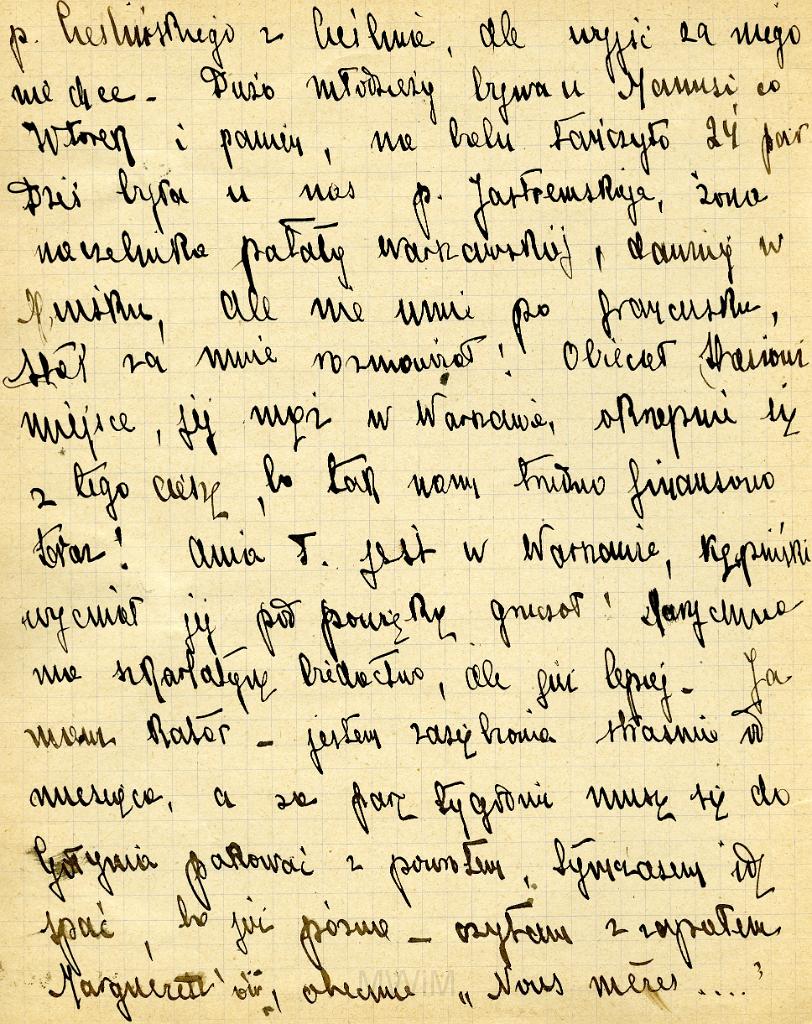 p. Cieślińskiego z Cieślinie, ale wyjść za niego
nie chce - Dużo młodzieży bywa u Manusi co
Wtorek i panien, na balu tańczyło 24 par
Dziś była u nas p. Jastremskaja, żona
naczelnika pałaty warszawskiej, dawniej w
Mińsku, ale nie umie po francusku,
stąd za mnie rozmawiał! Obiecał Stasiowi
miejsce, jej mąż w Warszawie, okropnie się
z tego cieszę, bo tak nam trudno finansowo
teraz! Ania T. jest w Warszawie, Kępiński
wyciął jej pod powiekę gruczoł! Marychna
ma szkarlatynę biedactwo, ale już lepiej - Ja
mam katar - jestem zaziębiona strasznie od
miesiąca, a za parę tygodni muszę się do
pakować z powrotem, tymczasem idę
spać, bo już późno - czytam z zapałem
Marguerett'ów, obecnie „Nous mères ...."
MWiM